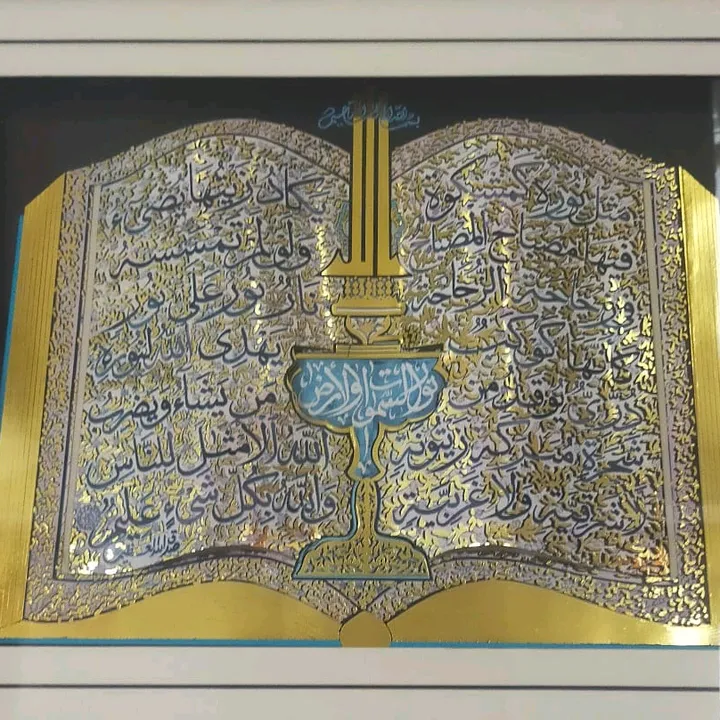 بسم الله الرحمن الرحيم
الله
نور السموات والارض
مثل نوره كمشكوة
فيها مصباح المصباح
فى زجاجة الزجاجة
كأنها كوكب
درى يوقد من
شجرة مبركة زيتونة
لا شرقية ولا غربية
يكاد زيتها يضىء
ولو لم تمسسه
نار نور على نور
يهدى الله لنوره
من يشاء ويضرب
الله الامثل للناس
والله بكل شىء عليم
صدق الله